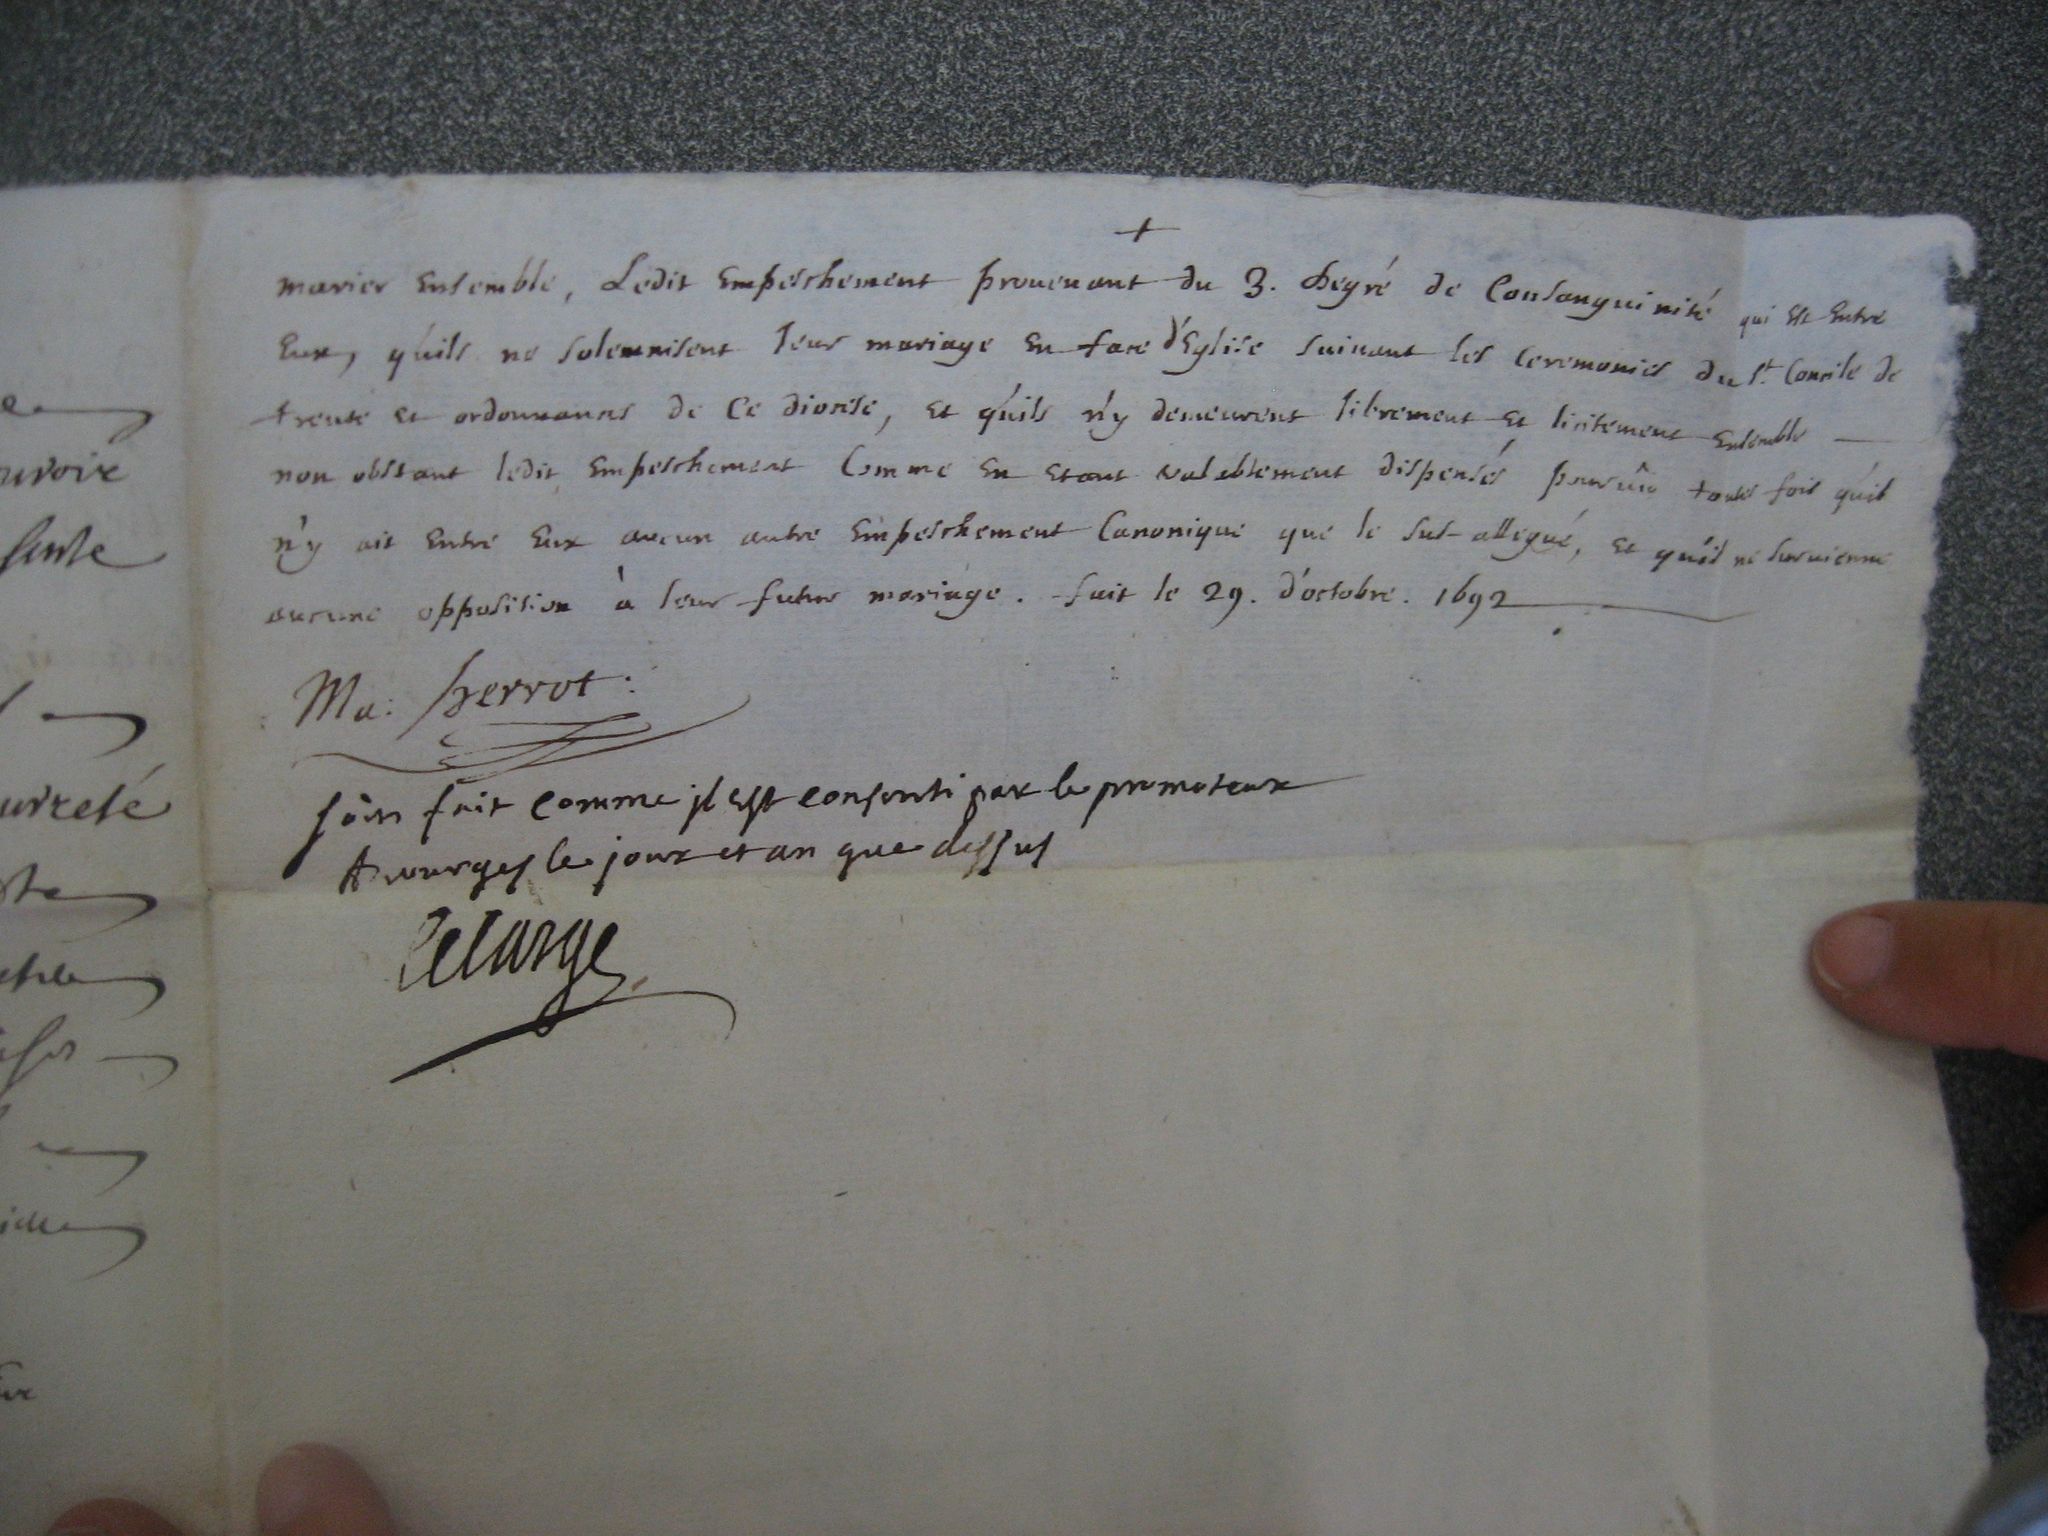 +
marier Ensemble, Ledit Empeschement provenant du 3. degré de Consanguinité qui Est Entre
Eux, qu'ils ne solemnisent leur mariage En face d'Eglise suivant les Ceremonies du St. Concile de
trente Et ordonnances de Ce diocèse, Et qu'ils n'y demeurent librement Et licitement Ensemble
non obstant ledit Empeschement Comme En Etant valablement dispensés pourvû toutes fois qu'il
n'y ait Entre Eux aucun autre Empeschement Canonique que le sus-allegué, Et qu'il ne survienne
aucune opposition à leur futur mariage. fait le 29. d'octobre. 1692
Ma: perrot:
soin fait comme jl est consenti par le promoteur
A bourges le jour et an que dessus
Lelarge
uvoir
uvreté